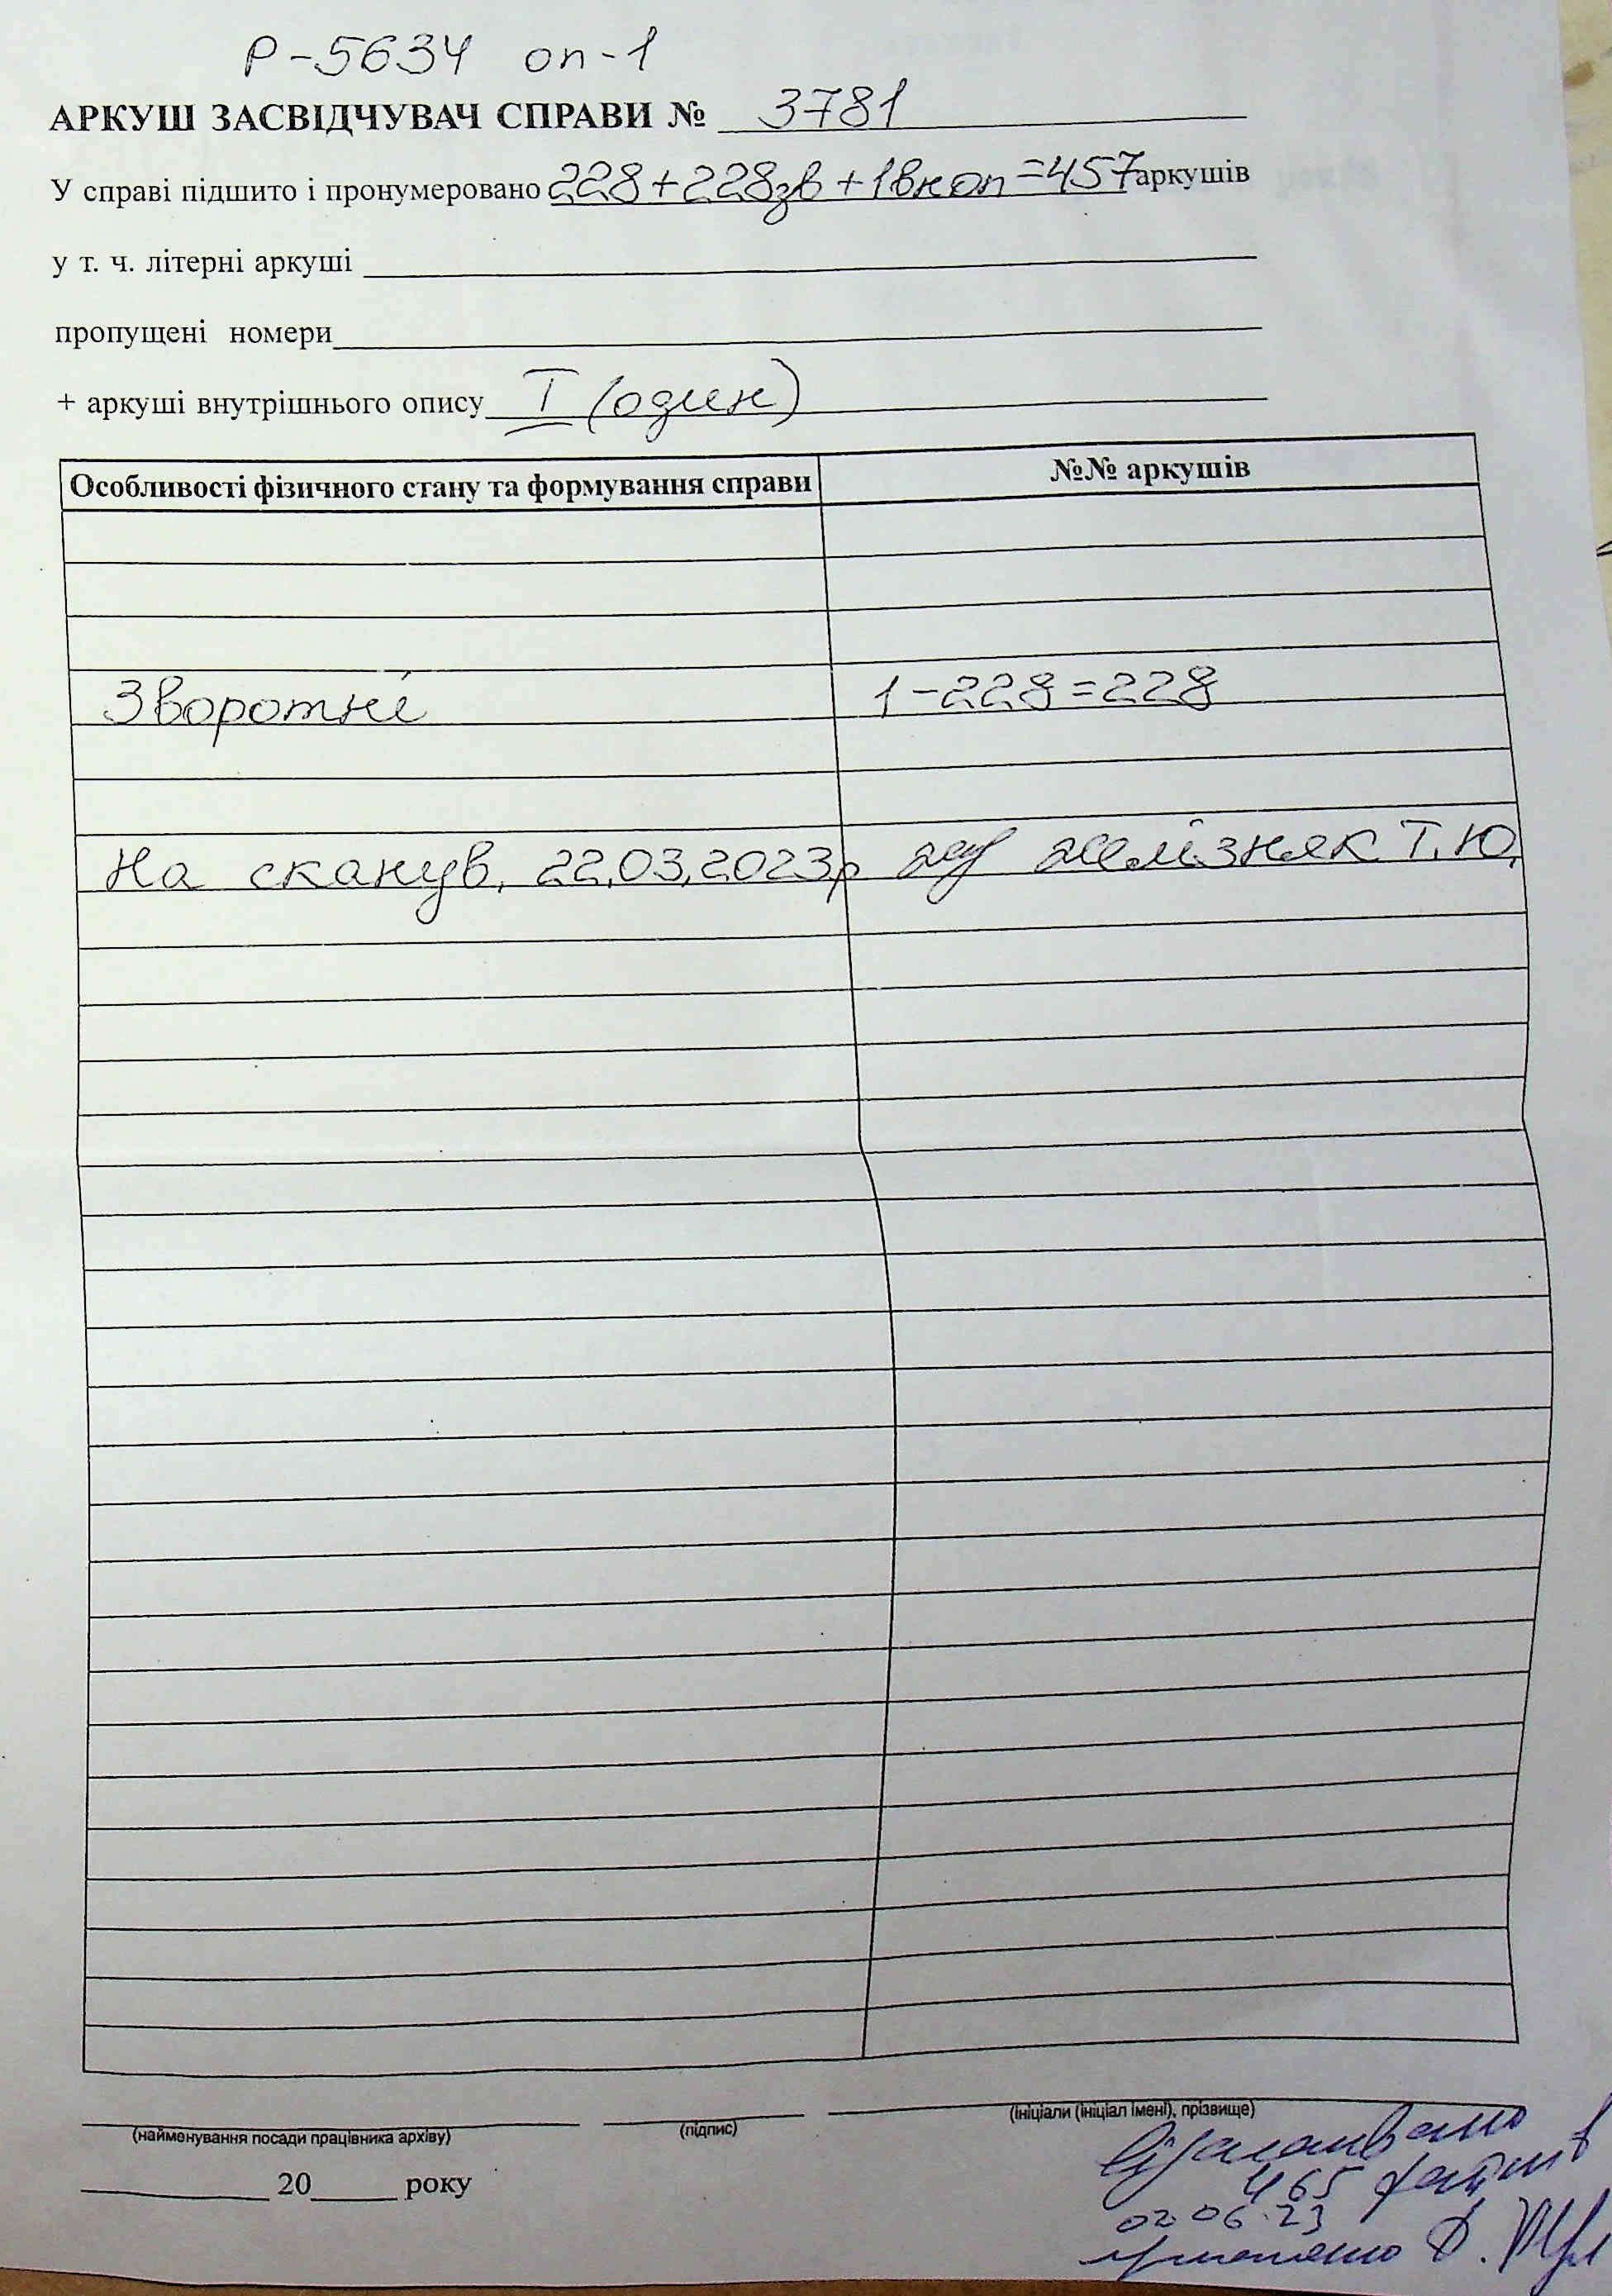 Р-5634 оп-1
АРКУШ ЗАСВІДЧУВАЧ СПРАВИ № 3781
У справі підшито і пронумеровано 228+228зв+1вн оп=457 аркушів
у т. ч. літерні аркуші
пропущені номери
+ аркуші внутрішнього опису І (один)
Особливості фізичного стану та формування справи №№ аркушів
Зворотні 1-228=228
На сканув. 22.03.2023р Желізняк Т.Ю.
(найменування посади працівника архіву) (підпис) (ініціали (ініціал імені), прізвище)
20 року
Відскановано
465 файлів
02.06.23